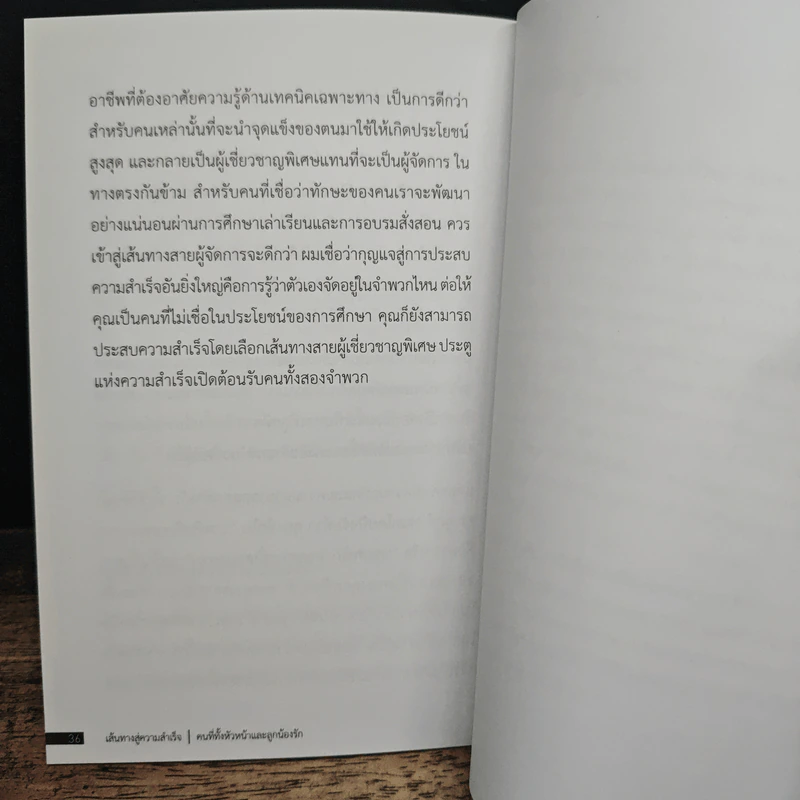 อาชีพที่ต้องอาศัยความรู้ด้านเทคนิคเฉพาะทาง เป็นการดีกว่า
สำหรับคนเหล่านั้นที่จะนำจุดแข็งของตนมาใช้ให้เกิดประโยชน์
สูงสุด และกลายเป็นผู้เชี่ยวชาญพิเศษแทนที่จะเป็นผู้จัดการ ใน
ทางตรงกันข้าม สำหรับคนที่เชื่อว่าทักษะของคนเราจะพัฒนา
อย่างแน่นอนผ่านการศึกษาเล่าเรียนและการอบรมสั่งสอน ควร
เข้าสู่เส้นทางสายผู้จัดการจะดีกว่า ผมเชื่อว่ากุญแจสู่การประสบ
ความสำเร็จอันยิ่งใหญ่คือการรู้ว่าตัวเองจัดอยู่ในจำพวกไหน ต่อให้
คุณเป็นคนที่ไม่เชื่อในประโยชน์ของการศึกษา คุณก็ยังสามารถ
ประสบความสำเร็จโดยเลือกเส้นทางสายผู้เชี่ยวชาญพิเศษ ประตู
แห่งความสำเร็จเปิดต้อนรับคนทั้งสองจำพวก
36 เส้นทางสู่ความสำเร็จ | คนที่ทั้งหัวหน้าและลูกน้องรัก